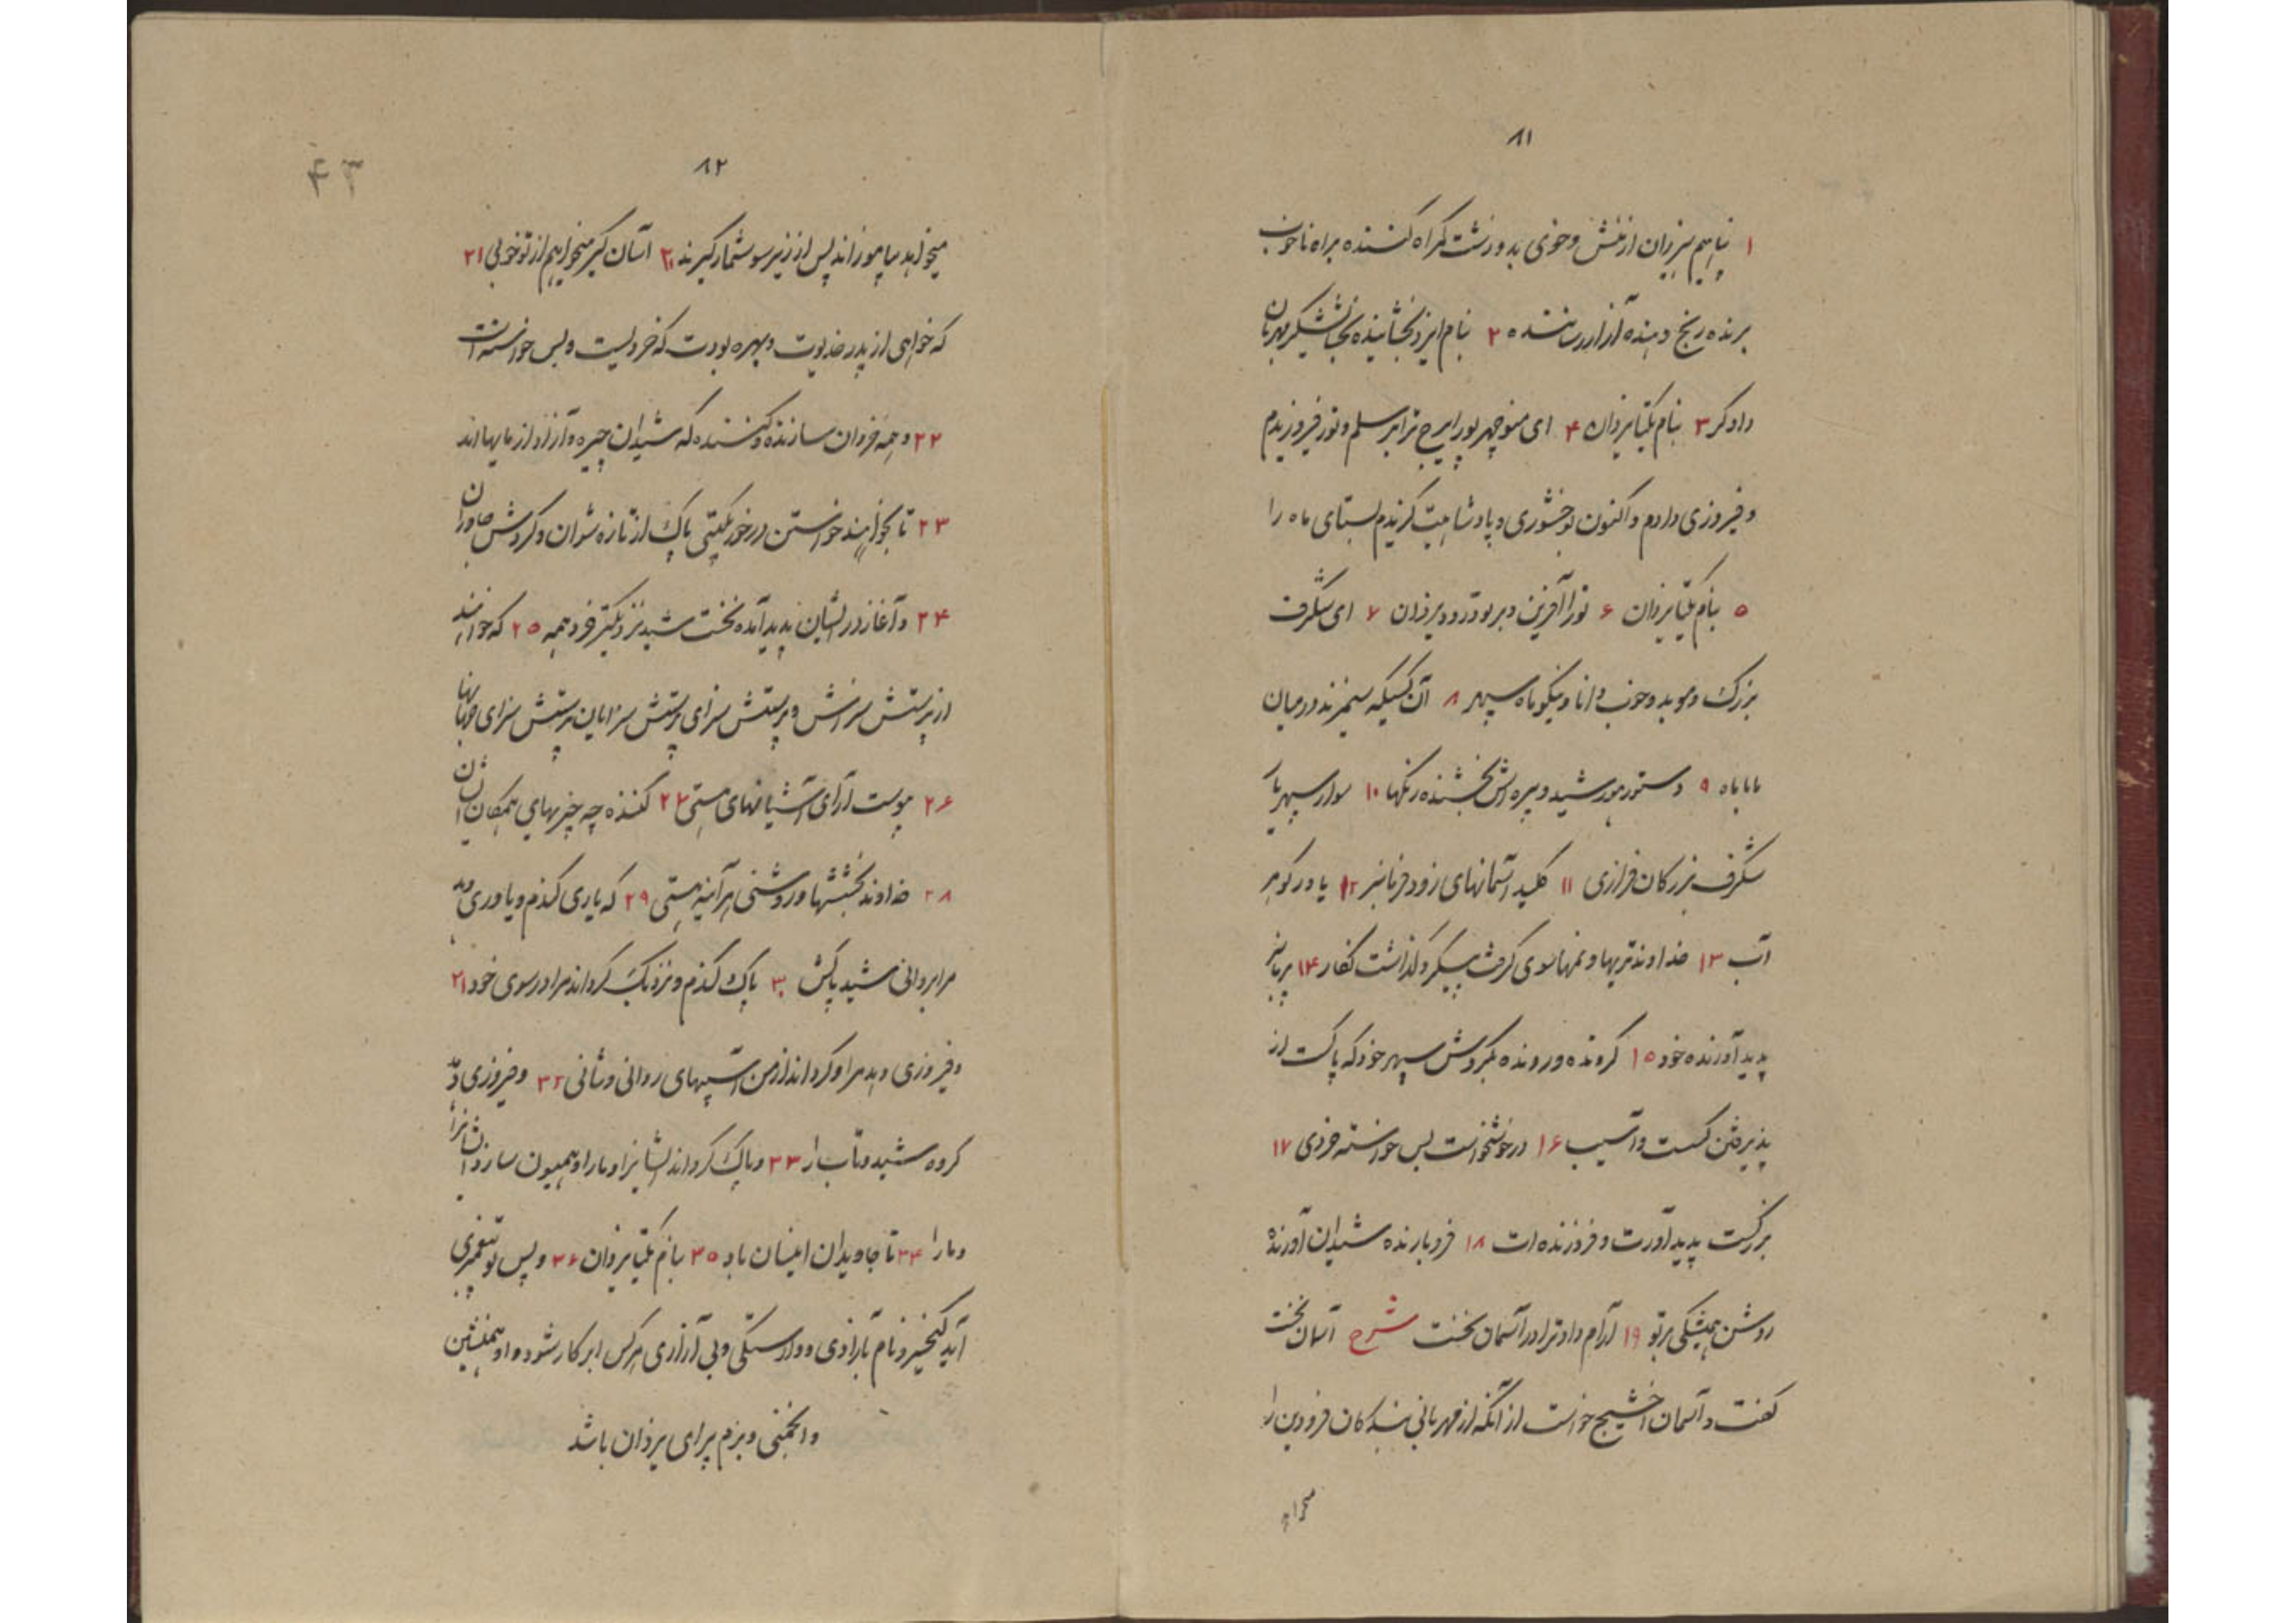 ۸۱
۱ پناهیم بیزدان از منش و خوی بد و زشت گمراه کننده براه ناخوب
برنده رنج دهنده آزار رساننده ۲ بنام ایزد بخشاینده بخشایشگر مهربان
دادگر ۳ بنام یکتا یزدان ۴ ای منوچهر پور ایرج ترا بر سلم و تور فیروزیدم
و فیروزی دادم و اکنون بوخشوری و پادشاهیت گزیدم بستای ماه را
۵ بنام یکتا یزدان ۶ ترا آفرین و بر تو درود یزدان ۷ ای شگرف
بزرگ و موبد و خوب و دانا و نیکو ماه سپهر ۸ آن کسیکه سیمزند در میان
ماباه ۹ دستور هورشید و بهره اش بخشنده رنگها ۱۰ سوار سپهر یا
شگرف بزرگان فرازی ۱۱ کلید آسمانهای زود فرمانبر ۱۲ یاور گوهر
آب ۱۳ خداوند تریها و نمها سوی گرفت پیکر و گذاشت نگار ۱۴ پرمانبر
پدید آورنده خود ۱۵ گردنده و رونده بگردش سپهر خود که پاکست از
پذیرفتن گسست و آسیب ۱۶ در خوشخواست بس خواسته خردی ۱۷
بزرگست پدید آورت و فروزنده ات ۱۸ فروبارنده شیدان آورنده
روشن همیشگی بر تو ۱۹ آرام داد ترا در آسمان نخست شرح آسمان نخست
گفت و آسمان اخشیج خواست از آنکه از مهربانی بندگان فرودین را
میخواهد
۸۲
۴۳
میخواهد بیاموزاند پس از زیر سو شمار گیرند ۲۰ آسان گیر میخواهم از تو خوبی ۲۱
که خواهی از پدر خدیوت و بهره بودت که خردیست و بس خواسته است
۲۲ و همه فردان سازنده و کننده که شیدان چیره و آزاد از مایها اند
۲۳ تا بخواهند خواستن در خور گیتی پاک از تازه شوان و گردش جاوران
۲۴ و آغاز در ایشان پدید آمده نخست شید نزدیکتر خرد همه ۲۵ که خواهند
از پرستش سزاش و پرستش سزای پرستش سزایان پرستش سزای جهانها
۲۶ پوست آرای آشیانهای هستی ۲۷ کننده چه چیزهای همگان ایشان
۲۸ خداوند بخششها و روشنی هر آینه هستی ۲۹ که یاری کندم و یاوری دهد
مرا بر وانی شید پاکش ۳۰ پاک کندم و نزدیک گرداند مرا در سوی خود ۳۱
و فیروزی دهد مرا و گرداند از من آسیبهای روانی و تنانی ۳۲ و فیروزی دهد
گروه شید و تاب را ۳۳ و پاک گرداند ایشانرا و ما را و همیون سازد ایشانرا
و ما را ۳۴ تا جاویدان اینسان باد ۳۵ بنام یکتا یزدان ۳۶ و پس تو پیغمبری
آید کیخسرو نام بآزادی و وارستگی و بی آزاری هر کس ابر کار شود و او همنشین
و انجمنی و بزم پیرای یزدان باشد